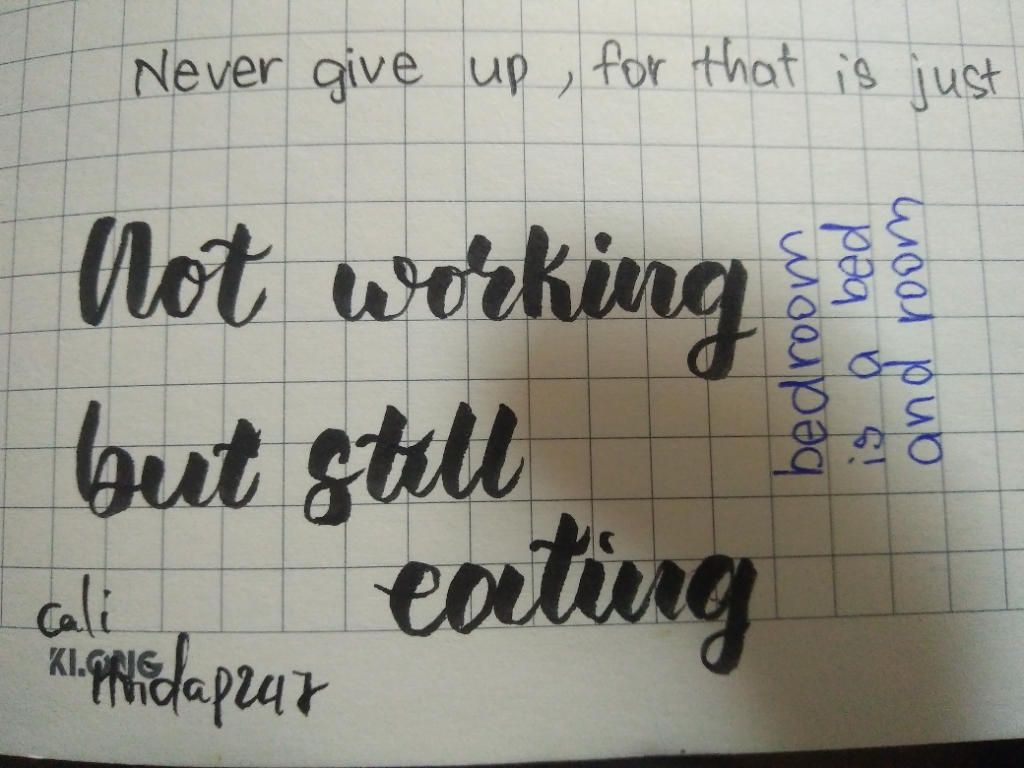 Never give up, for that is just
Not working
but still
eating
bedroom
is a bed
and room
cali